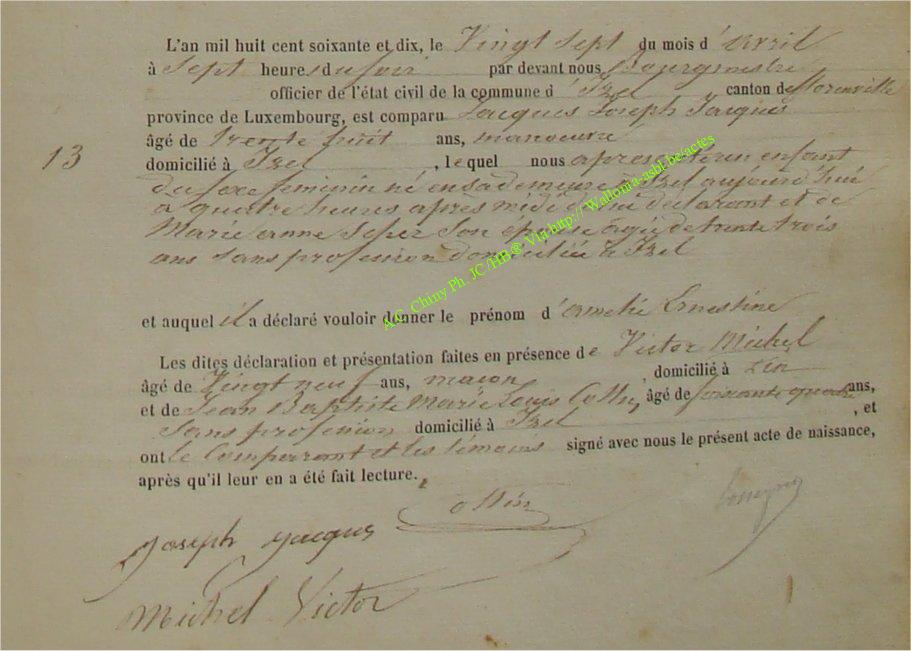 L'an mil huit cent soixante et dix, le Vingt sept du mois d'avril
à Sept heures du soir par devant nous Bourgmestre
officier de l'état civil de la commune d'Izel canton de florenville
province de Luxembourg, est comparu Jacques Joseph Jacques
âgé de trente huit ans, manoeuvre
13 domicilié à Izel, lequel nous a présenté un enfant
du sexe feminin né en sa demeure à Izel aujourd'hui
a quatre heures après midi de lui declarant et de
Marie anne son épouse agée de trente trois
ans sans profession domiciliée à Izel
et auquel il a déclaré vouloir donner le prénom d' Ernestine
Les dites déclaration et présentation faites en présence de Victor Michel
âgé de Vingt neuf ans, maçon, domicilié à
et de Jean Baptiste Marie Louis âgé de soixante quatre ans,
Sans profession domicilié à Izel, et
ont le Comparrant et les témoins signé avec nous le présent acte de naissance,
après qu'il leur en a été fait lecture.
Joseph Jacques
Michel Victor
A.C. Chiny Ph. JC/HB® Via http://Wallonia-asbl.be/actes